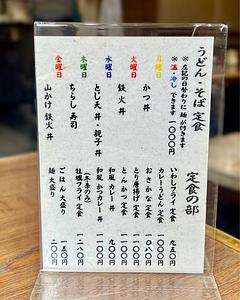 うどん・そば 定食
※ 左記の日替わりに 麺 が付きます
※ 温・冷し できます 一〇〇〇円
月曜日 かつ 丼
火曜日 鉄火 丼
水曜日 とじ天 丼・親子 丼
木曜日 ちらし 寿司
金曜日 山かけ 鉄火 丼
定食の部
いわしフライ 定食 九五〇円
カレーうどん 定食 一〇〇〇円
おさかな 定食 一〇八〇円
とり唐揚げ 定食
とんかつ 定食
和風 カレー 丼 九〇〇円
和風 かつカレー 丼
(冬季のみ)
牡蠣フライ 定食 一二八〇円
ごはん 大盛り 一五〇円
麺 大盛り 二〇〇円